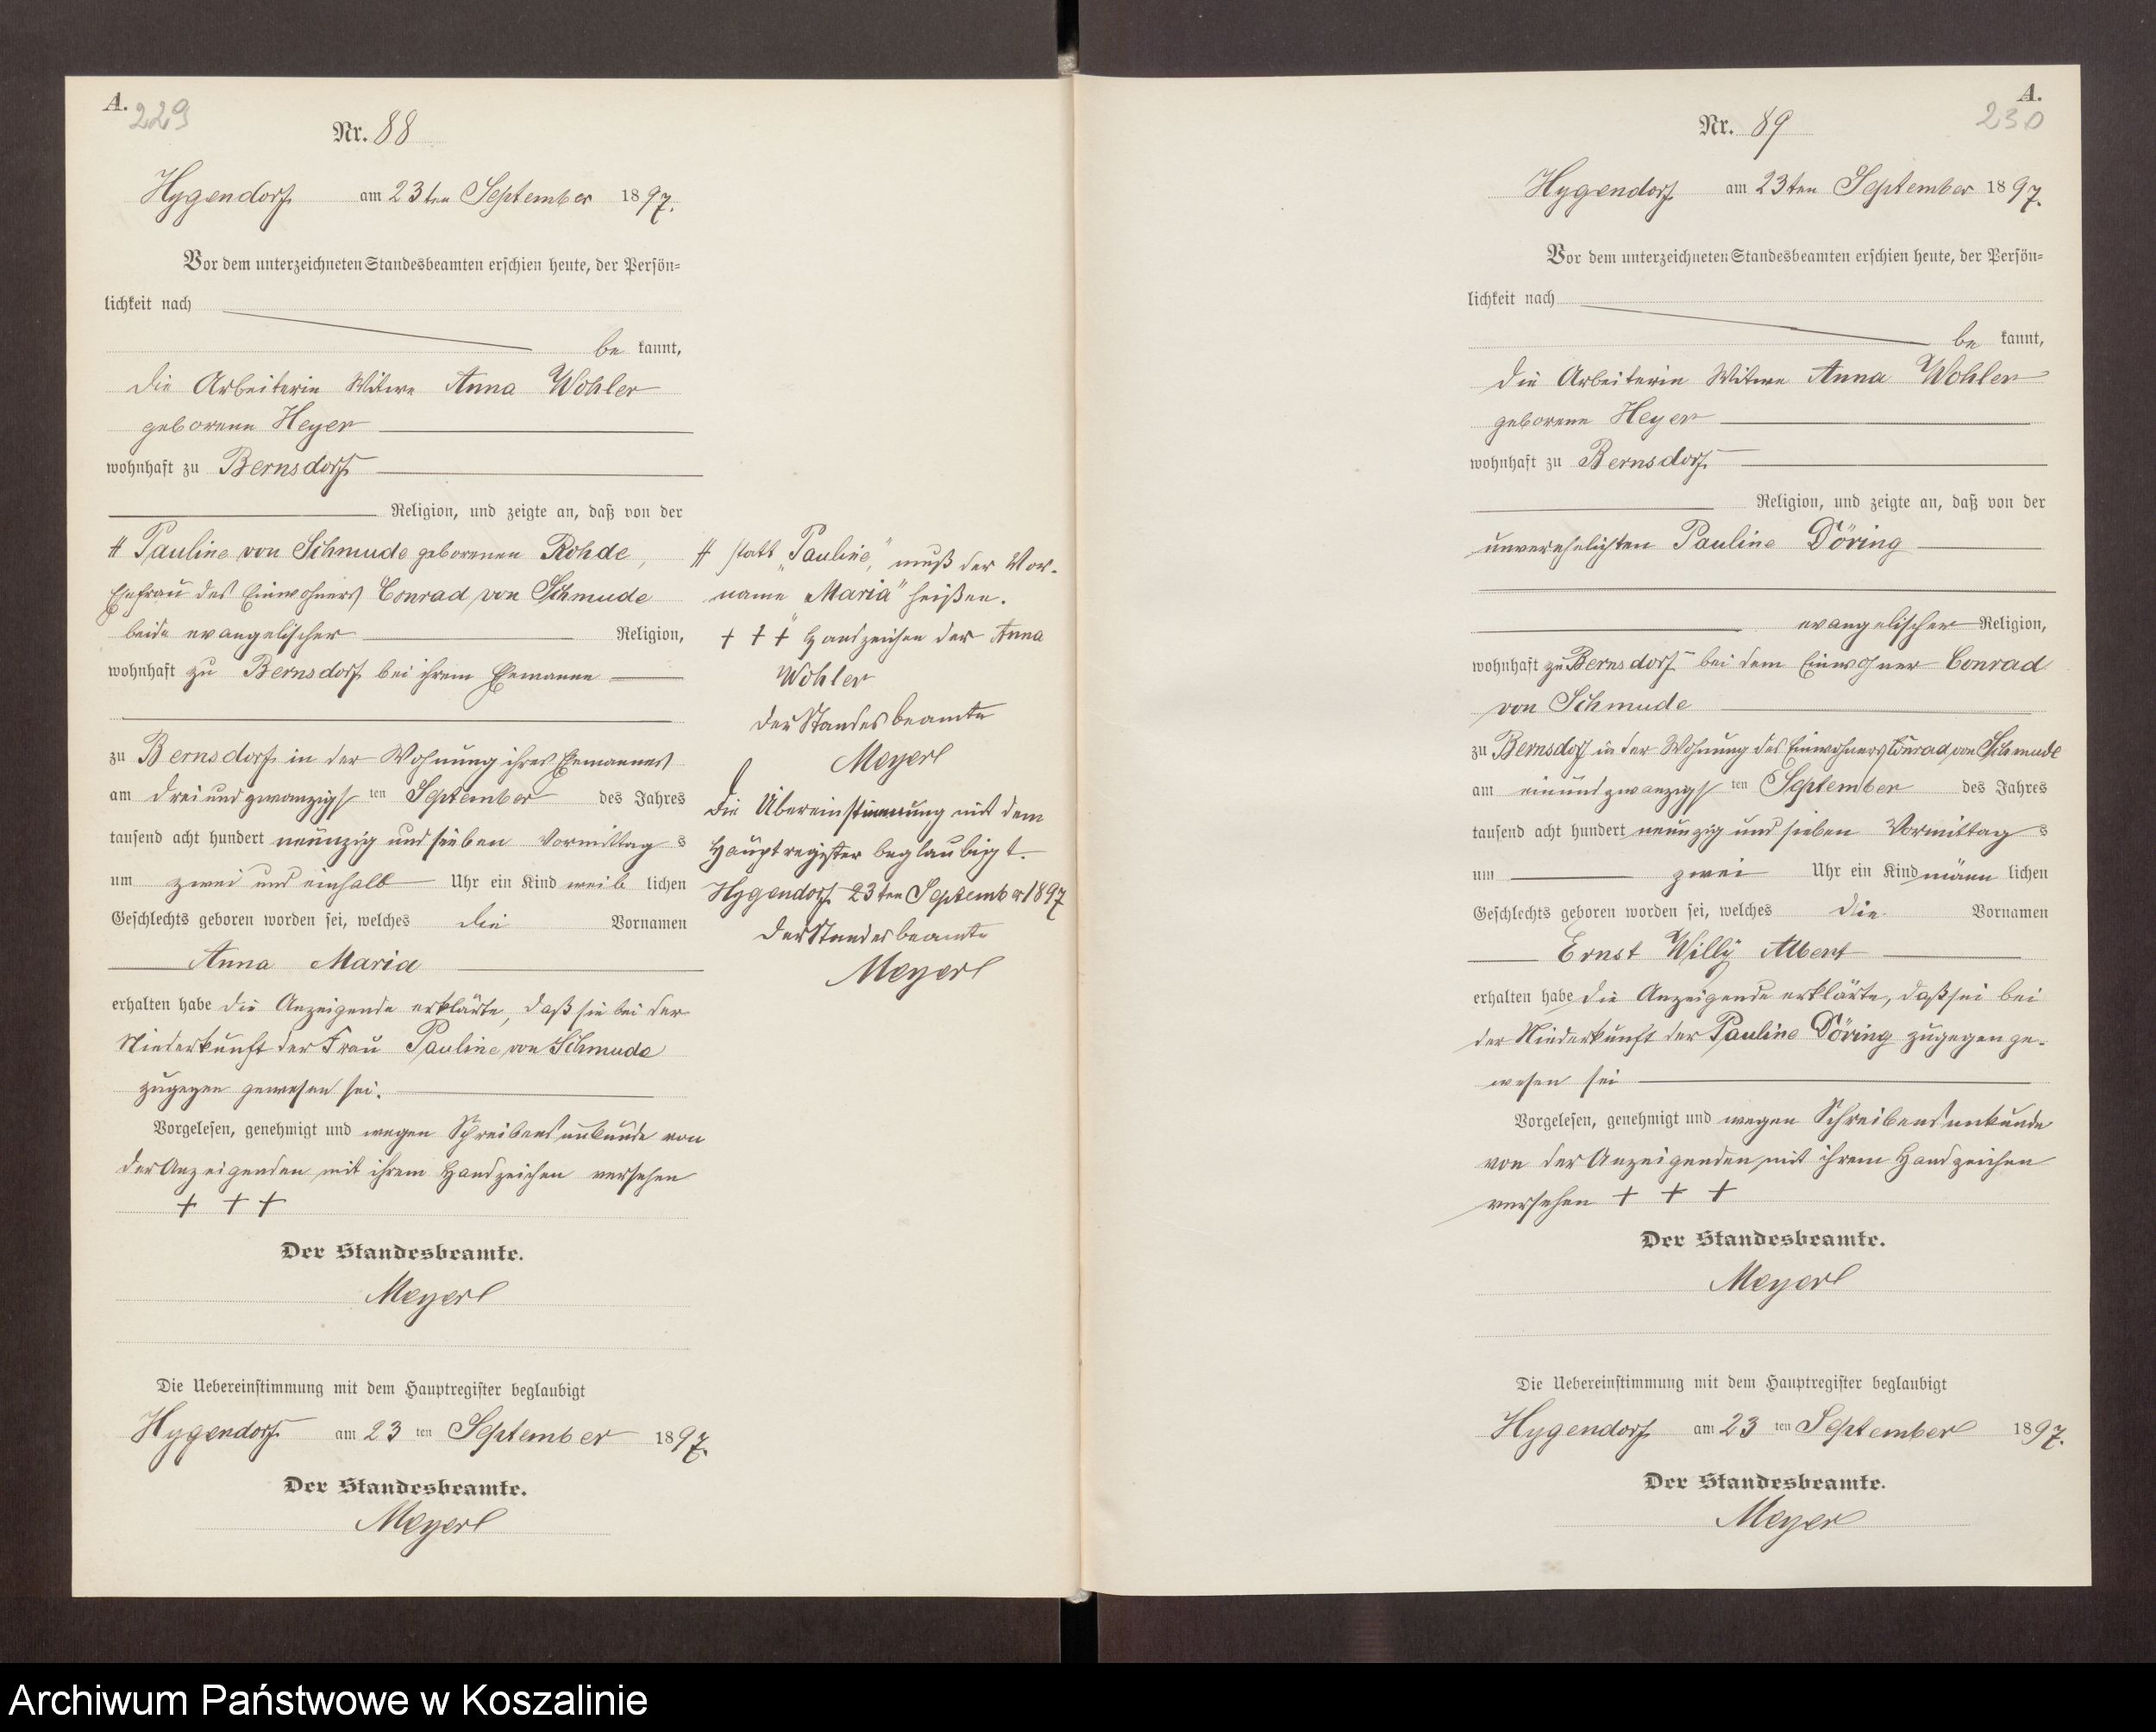 A.
229
Nr. 88
Hygendorf am 23ten September 1897.
Vor dem unterzeichneten Standesbeamten erschien heute, der Persön=
lichkeit nach
be kannt,
die Arbeiterin Witwe Anna Wohler
geborene Heyer
wohnhaft zu Bernsdorf
Religion, und zeigte an, daß von der
# Pauline von Schmude geborenen Rohde,
Ehefrau des Einwohners Conrad von Schmude
beide evangelischer Religion,
wohnhaft zu Bernsdorf bei ihrem Ehemanne
zu Bernsdorf in der Wohnung ihres Ehemannes
am dreiundzwanzigsten September des Jahres
tausend acht hundert neunzig und sieben Vormittags
um zwei und einhalb Uhr ein Kind weiblichen
Geschlechts geboren worden sei, welches die Vornamen
Anna Maria
erhalten habe die Anzeigende erklärte, daß sie bei der
Niederkunft der Frau Pauline von Schmude
zugegen gewesen sei.
Vorgelesen, genehmigt und wegen Schreibensunkunde von
der Anzeigenden mit ihrem Handzeichen versehen
+ + +
Der Standesbeamte.
Meyerl
Die Uebereinstimmung mit dem Hauptregister beglaubigt
Hygendorf am 23 ten September 1897.
Der Standesbeamte.
Meyerl
# statt „Pauline," muß der Vor-
name „Maria" heißen.
+ + + Handzeichen der Anna
Wohler
der Standesbeamte
Meyerl
Die Übereinstimmung mit dem
Hauptregister beglaubigt.
Hygendorf 23ten September 1897
der Standesbeamte
Meyerl
A.
230
Nr. 89
Hygendorf am 23ten September 1897.
Vor dem unterzeichneten Standesbeamten erschien heute, der Persön=
lichkeit nach
be kannt,
die Arbeiterin Witwe Anna Wohler
geborene Heyer
wohnhaft zu Bernsdorf
Religion, und zeigte an, daß von der
unverehelichten Pauline Döring
evangelischer Religion,
wohnhaft zu Bernsdorf bei dem Einwohner Conrad
von Schmude
zu Bernsdorf in der Wohnung des Einwohners Conrad von Schmude
am einundzwanzigsten September des Jahres
tausend acht hundert neunzig und sieben Vormittags
um zwei Uhr ein Kind männlichen
Geschlechts geboren worden sei, welches die Vornamen
Ernst Willy Albert
erhalten habe die Anzeigende erklärte, daß sei bei
der Niederkunft der Pauline Döring zugegen ge-
wesen sei
Vorgelesen, genehmigt und wegen Schreibensunkunde
von der Anzeigenden mit ihrem Handzeichen
versehen + + +
Der Standesbeamte.
Meyerl
Die Uebereinstimmung mit dem Hauptregister beglaubigt
Hygendorf am 23 ten September 1897.
Der Standesbeamte.
Meyer
Archiwum Państwowe w Koszalinie